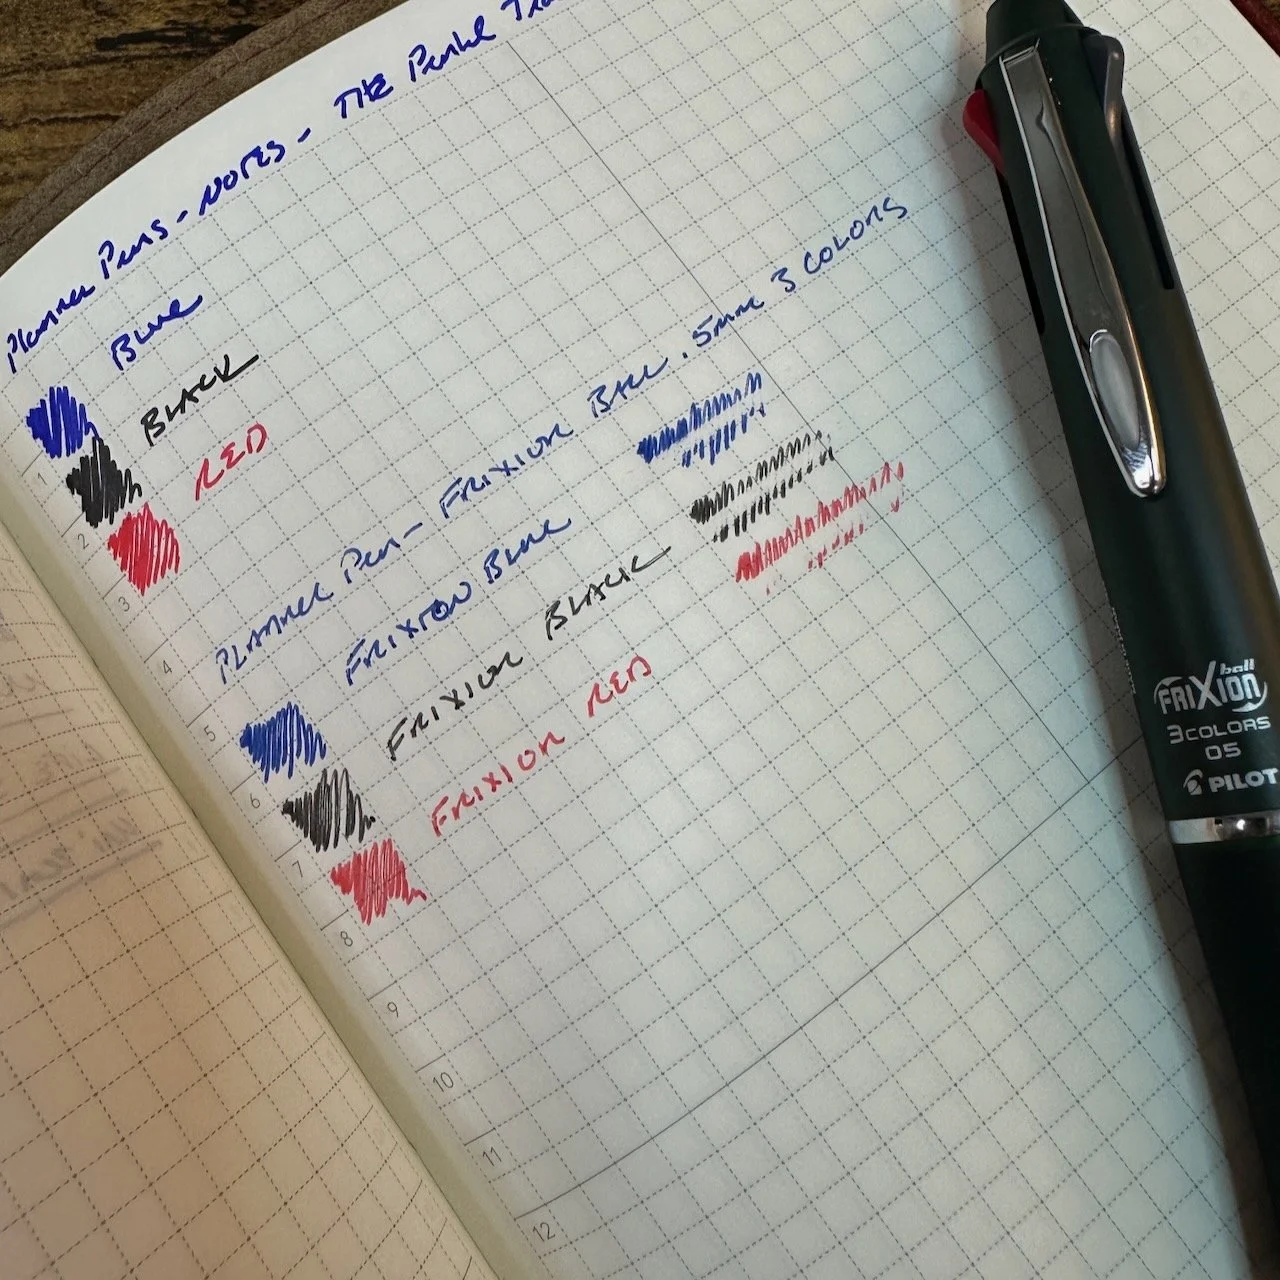 Planner Pens - NOTES - THE
BLUE
BLACK
RED
PLANNER Pen - FRIXION BALL .5mm 3 COLORS
FRIXION BLUE
FRIXION BLACK
FRIXION RED
1
2
3
4
5
6
7
8
9
10
11
12
FRIXION ball
3COLORS
05
PILOT